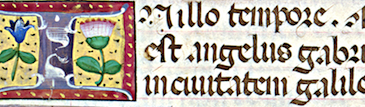 In illo tempore.
est angelus gabri
in ciuitatem galile